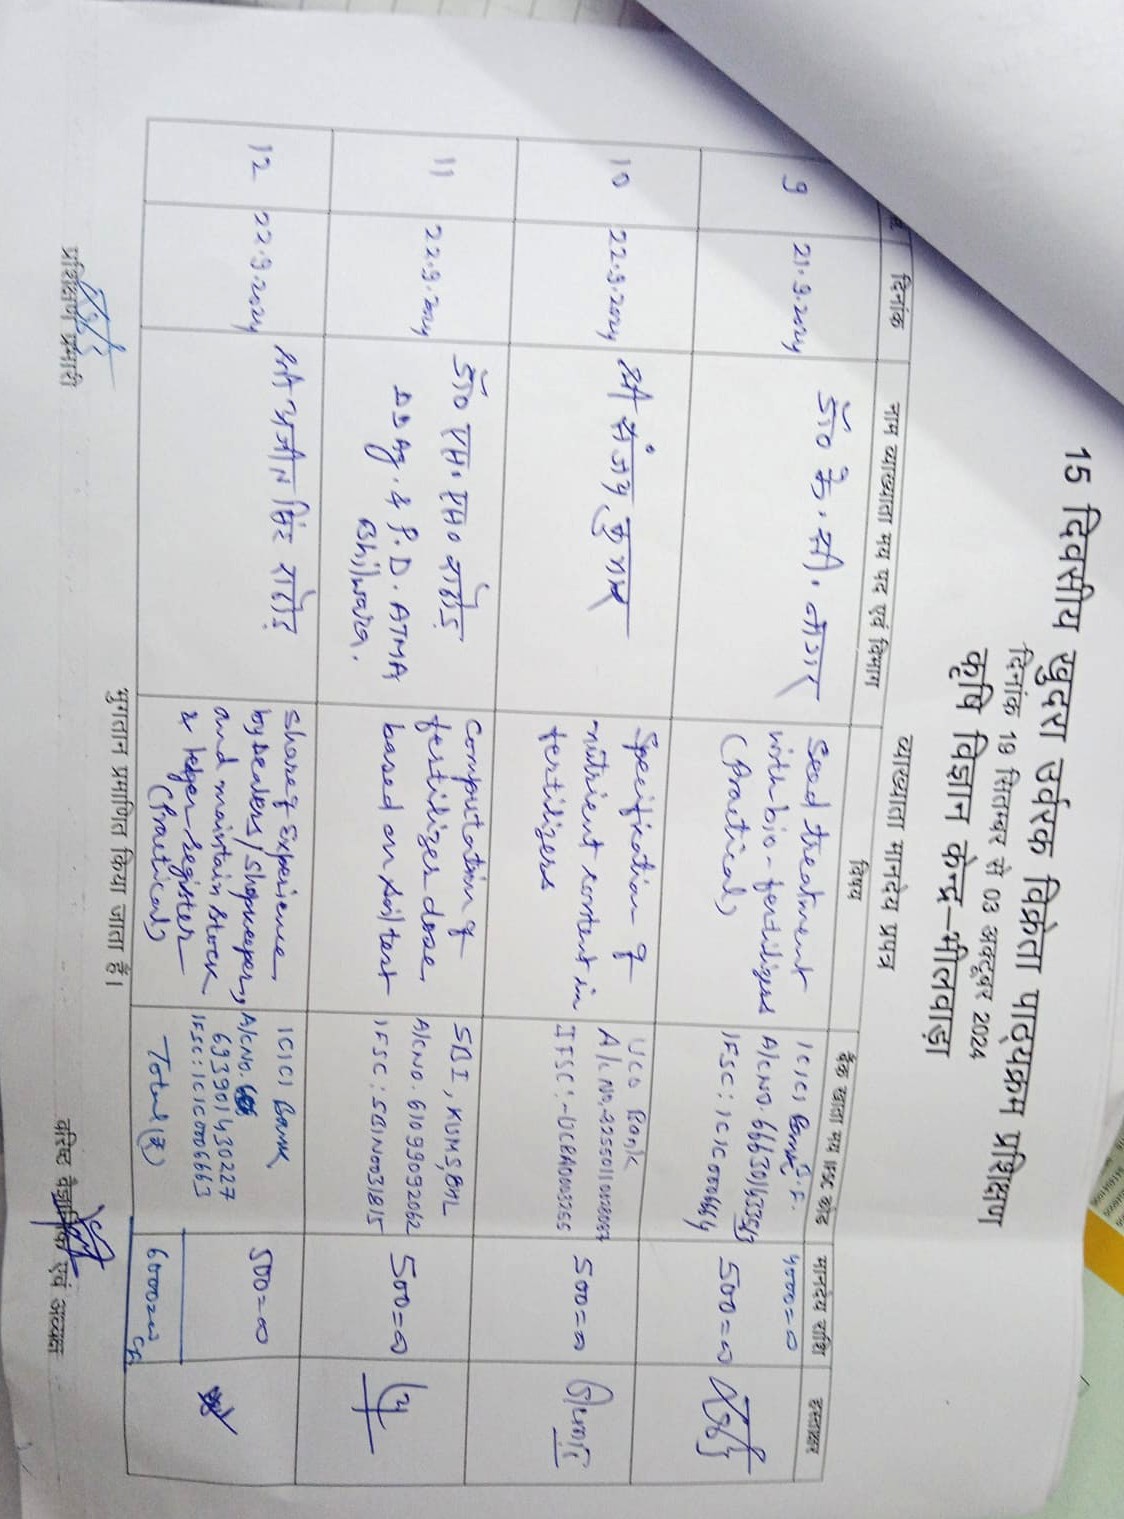 15 दिवसीय खुदरा उर्वरक विक्रेता पाठ्यक्रम प्रशिक्षण
दिनांक 19 सितम्बर से 03 अक्टूबर 2024
कृषि विज्ञान केन्द्र–भीलवाड़ा
व्याख्याता मानदेय प्रपत्र
दिनांक
नाम व्याख्याता मय पद एवं विभाग
विषय
बैंक खाता मय IFSC कोड
मानदेय राशि
हस्ताक्षर
B.F.
4000=00
9
21.9.2024
डॉ० के. सी. नागर
Seed treatment
with bio-fertilizers
(Practical)
ICICI Bank
500=00
10
22.9.2024
श्री संजय कुमार
Specification of
nutrient content in
fertilizers
UCO Bank
500=00
11
22.9.2024
डॉ० एस. एस. राठौड़
DDAg. & P.D. ATMA
Bhilwara.
Computation of
fertilizer dose
based on soil test
SBI, KUMS, BHL
A/c No. 61099092062
IFSC: SBIN0031815
500=00
12
22.9.2024
सिंह राठौड़
Share of Experience
by Dealers/Shopkeepers,
and maintain stock
& ledger register
(Practical)
ICICI Bank
A/c No.
693901430227
IFSC: ICIC0006663
500=00
Total (₹)
6000=00
भुगतान प्रमाणित किया जाता है।
प्रशिक्षण प्रभारी
वरिष्ठ वैज्ञानिक एवं अध्यक्ष